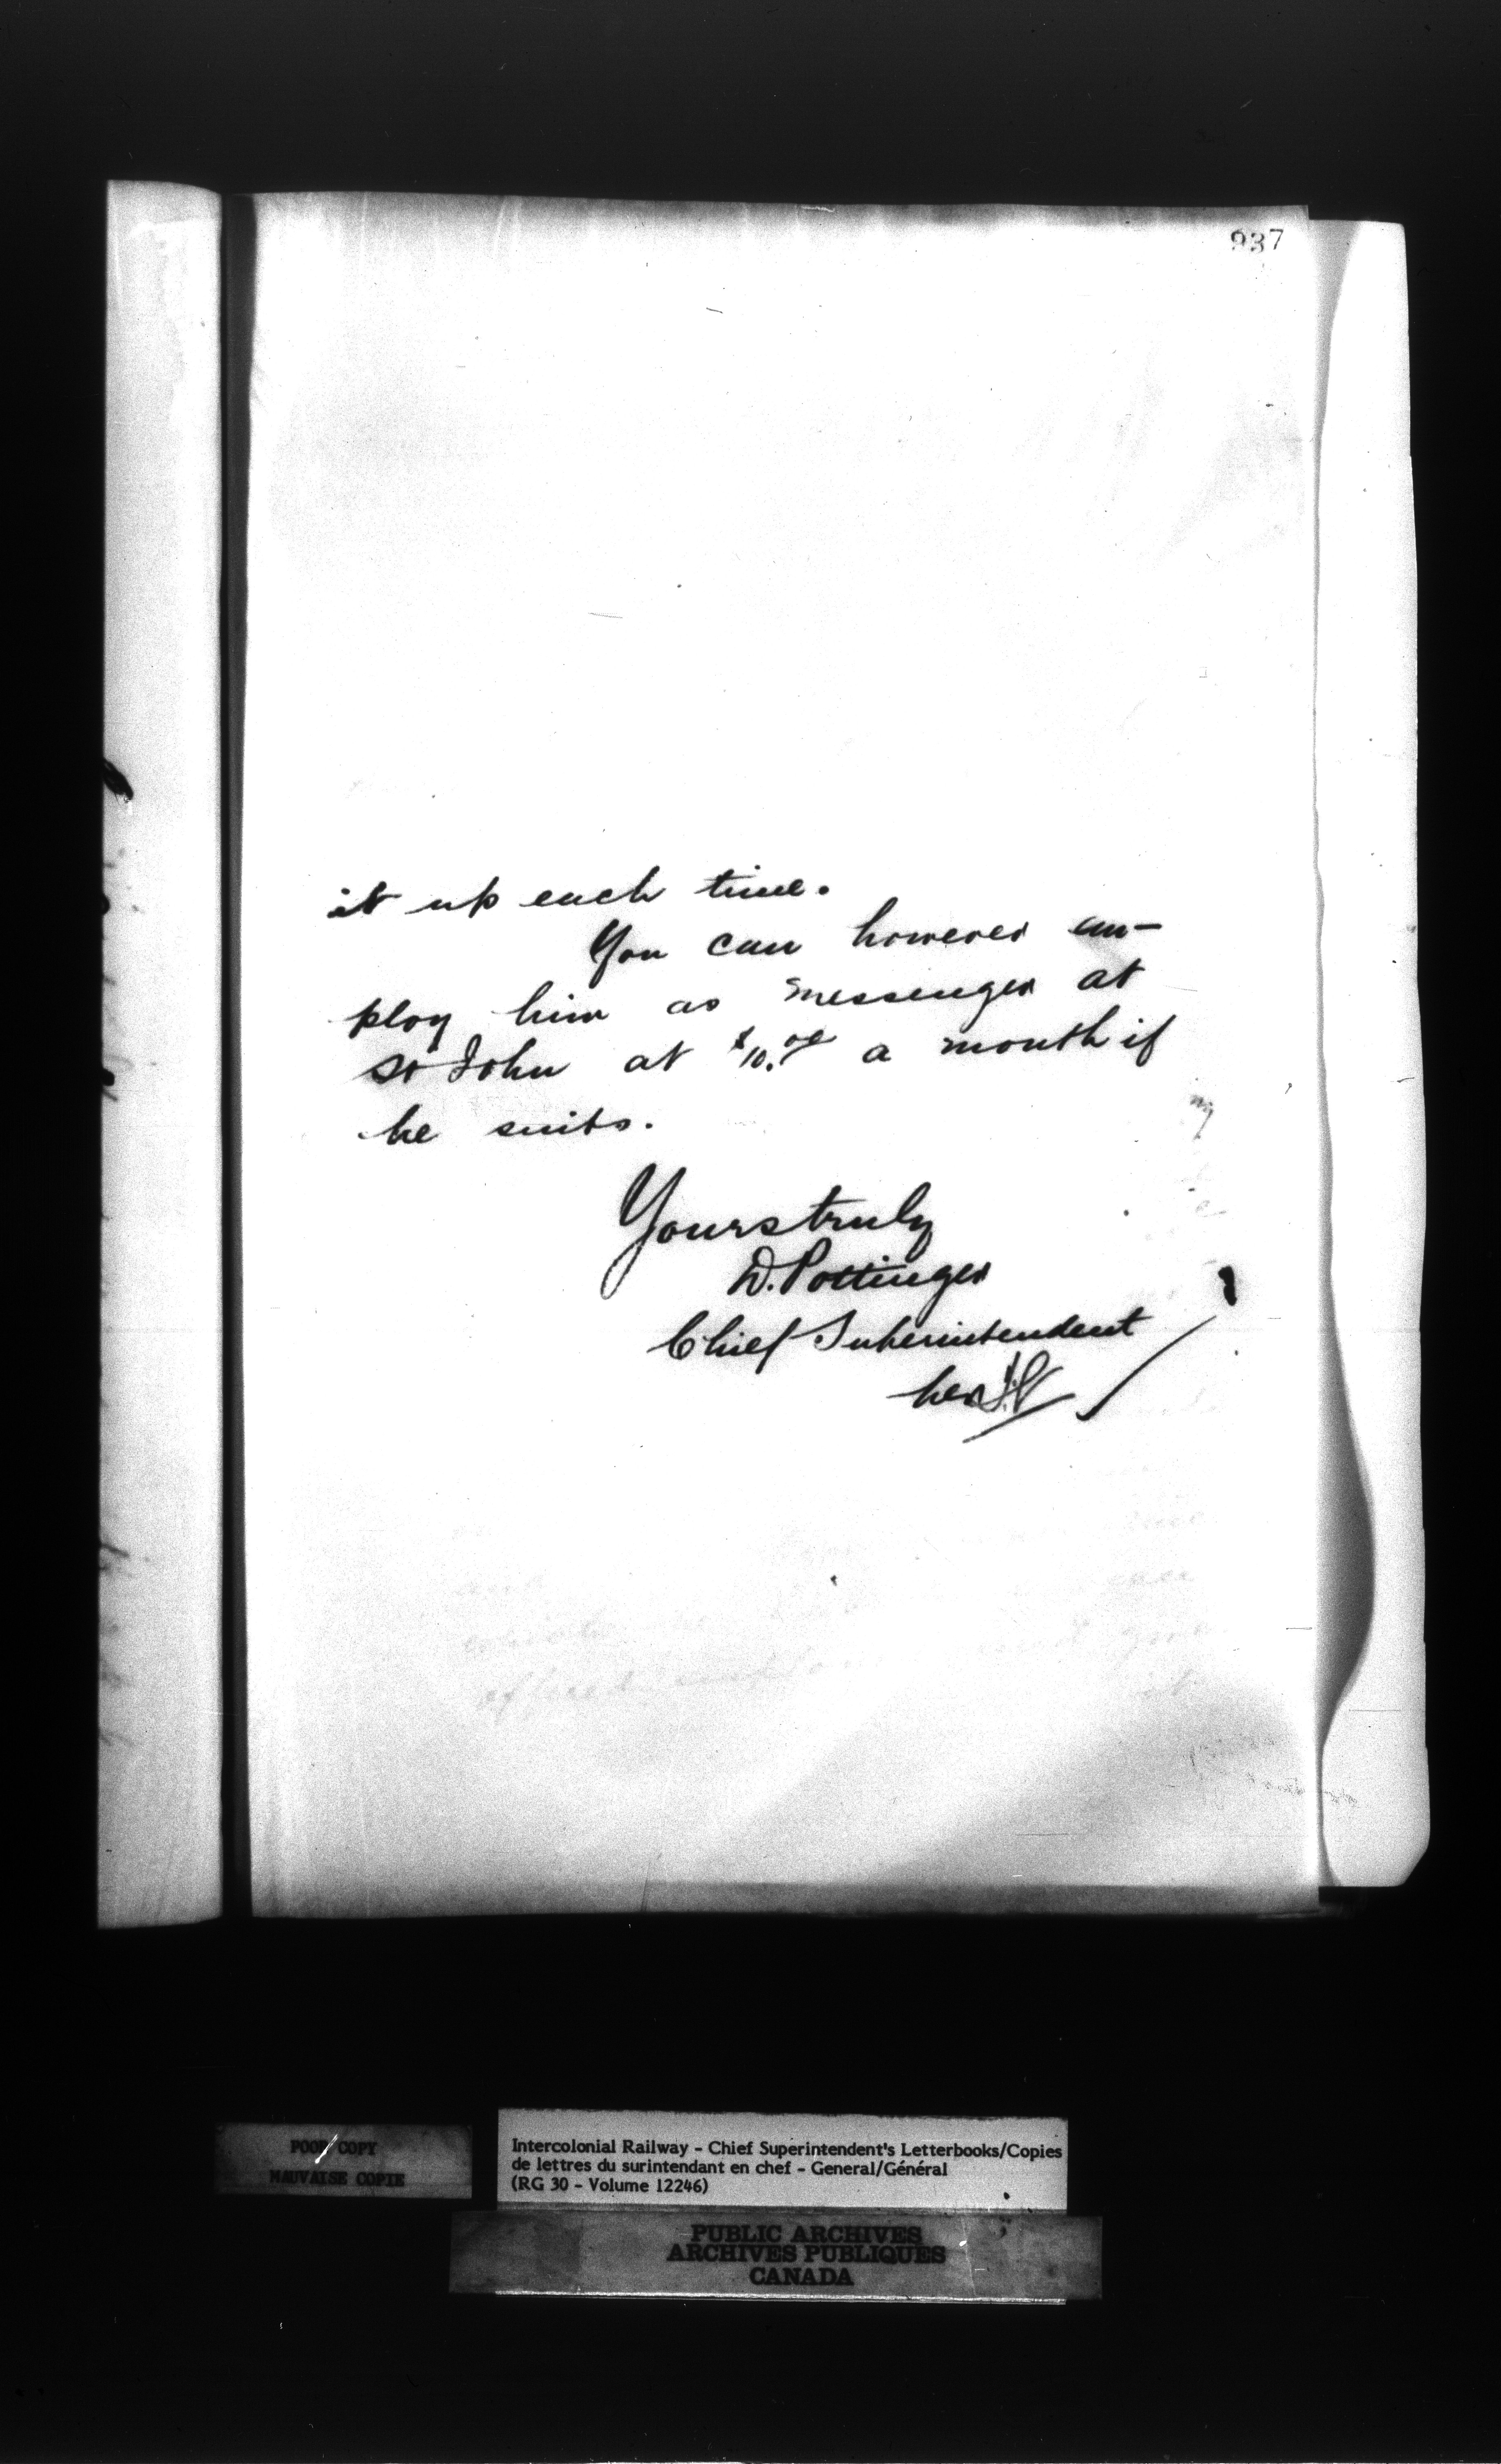 937
it up each time.
You can however em-
ploy him as messenger at
St John at $10.00 a month if
he suits.
Yours truly
D. Pottinger
Chief Superintendent
per
POOR COPY
MAUVAISE COPIE
Intercolonial Railway - Chief Superintendent's Letterbooks/Copies
de lettres du surintendant en chef - General/Général
(RG 30 - Volume 12246)
PUBLIC ARCHIVES
ARCHIVES PUBLIQUES
CANADA